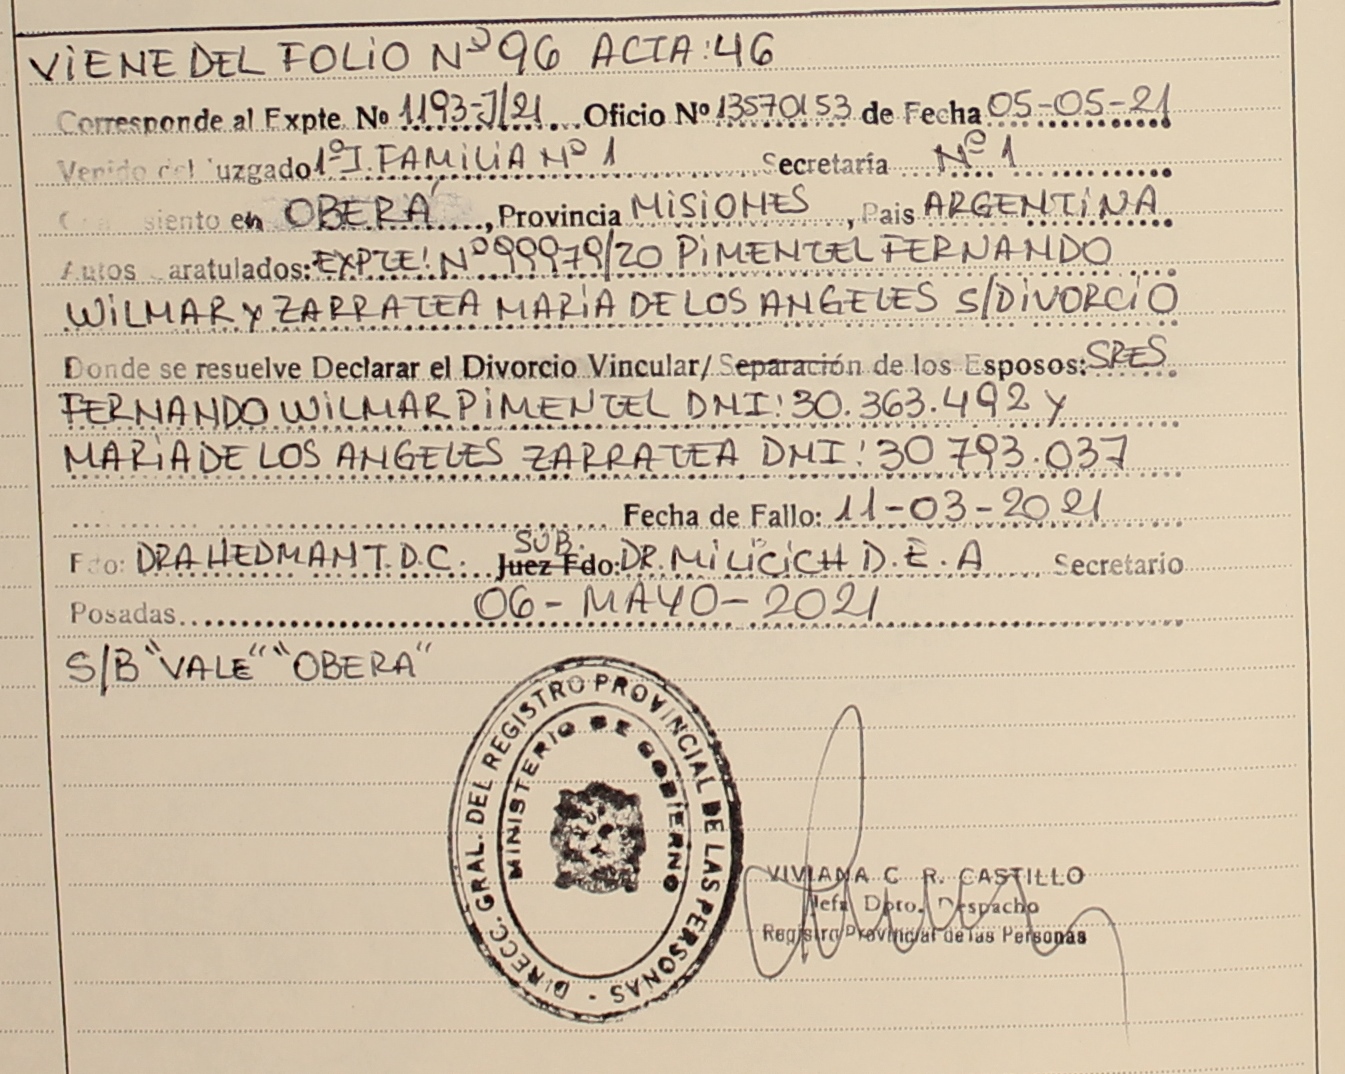 VIENE DEL FOLIO Nº 96 ACTA: 46
Corresponde al Expte. Nº 1193-J/21 Oficio Nº 13570153 de Fecha 05-05-21
Venido del Juzgado 1º I. FAMILIA Nº 1 Secretaría Nº 1
siento en OBERÁ, Provincia MISIONES, Pais ARGENTINA
Autos Caratulados: EXPTE: Nº 99979/20 PIMENTEL FERNANDO
WILMAR Y ZARRATEA MARIA DE LOS ANGELES S/DIVORCIO
Donde se resuelve Declarar el Divorcio Vincular/ Separación de los Esposos: SRES
FERNANDO WILMAR PIMENTEL DNI: 30.363.492 Y
MARIA DE LOS ANGELES ZARRATEA DNI: 30 793.037
Fecha de Fallo: 11-03-2021
Fdo: DRA HEDMAN T. D. C. SUB. Juez Fdo: DR. MILICICH D. E. A Secretario
Posadas 06-MAYO-2021
S/B "VALE" "OBERA"
DIRECC. GRAL. DEL REGISTRO PROVINCIAL DE LAS PERSONAS -
MINISTERIO DE GOBIERNO
VIVIANA C R. CASTILLO
Jefa Dpto. Despacho
Registro Provincial de las Personas